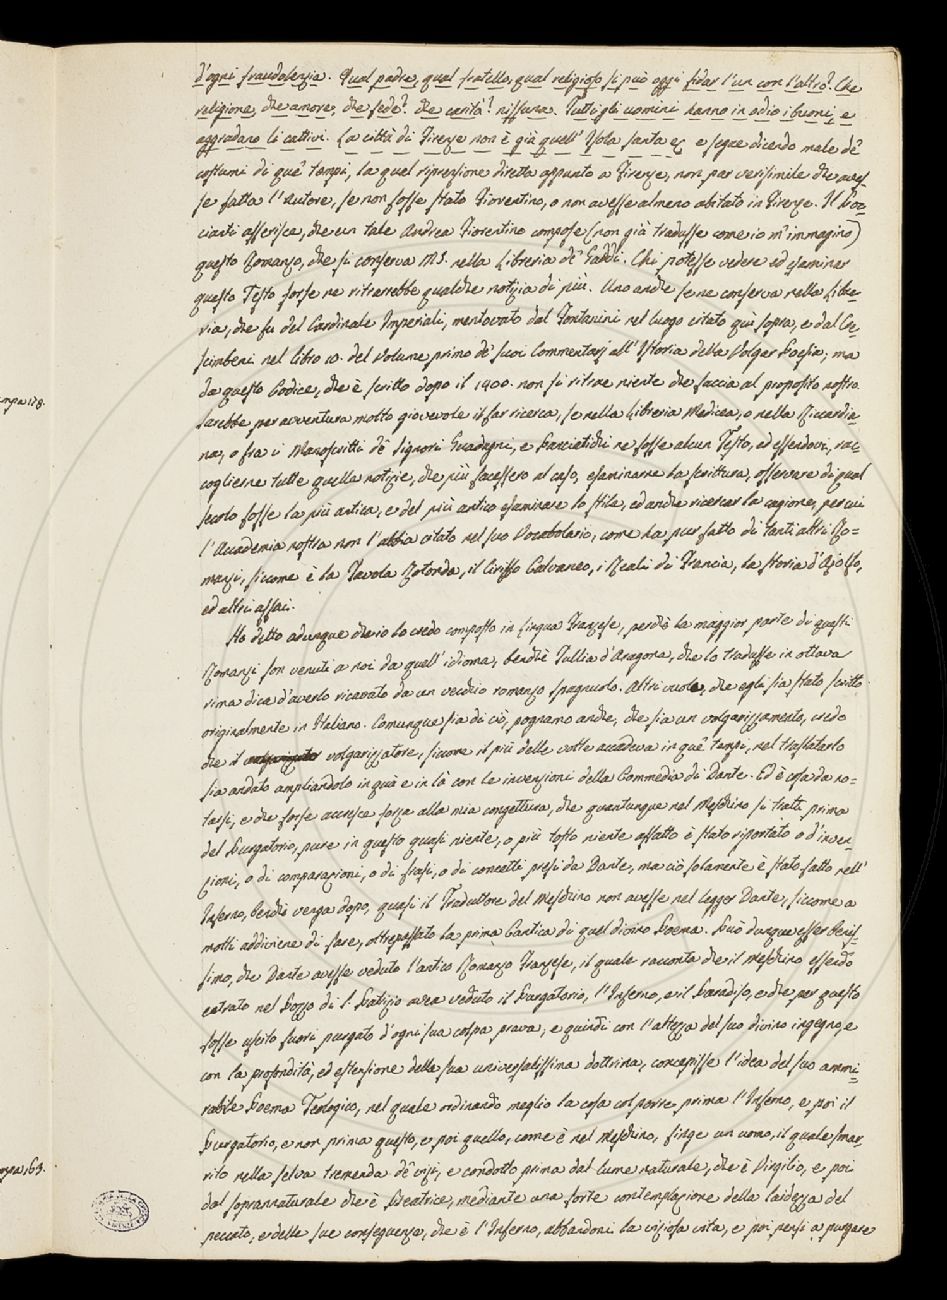 d'ogni fraudolenzia. Qual padre, qual fratello, qual religioso si può oggi fidar l'un con l'altro? Che
religione, che amore, che fede? che carità? nissuna. Tutti gli uomini hanno in odio i buoni, e
aggradano li cattivi. La città di Firenze non è già quell'Isola santa &c e segue dicendo male de'
costumi di que' tempi, la qual riprensione diretta appunto a Firenze, non par verisimile che aves-
se fatta l'Autore, se non fosse stato Fiorentino, o non avesse almeno abitato in Firenze. Il Poc-
cianti asserisce, che un tale Andrea Fiorentino compose (non già tradusse come io m'immagino)
questo Romanzo, che si conserva MS. nella Libreria de' Gaddi. Chi potesse vedere ed esaminar
questo Testo forse ne ritrarrebbe qualche notizia di più. Uno anche se ne conserva nella Libre-
ria, che fu del Cardinale Imperiali, mentovato dal Fontanini nel luogo citato quì sopra, e dal Cre-
scimbeni nel libro 10. del Volume primo de' suoi Commentarj all'Istoria della Volgar Poesia; ma
da questo Codice, che è scritto dopo il 1400. non si ritrae niente che faccia al proposito nostro.
Sarebbe per avventura molto giovevole il far ricerca, se nella Libreria Medicea, o nella Riccardia-
na, o fra i Manoscritti de' Signori Guadagni, e Panciatichi ne fosse alcun Testo, ed essendovi, rac-
coglierne tutte quelle notizie, che più facessero al caso, esaminarne la scrittura, osservare di qual
secolo fosse la più antica, e del più antico esaminare lo stile, ed anche ricercar la cagione, per cui
l'Accademia nostra non l'abbia citato nel suo Vocabolario, come ha pur fatto di tanti altri Ro=
manzi, siccome è la Tavola Rotonda, il Ciriffo Calvaneo, i Reali di Francia, la storia d'Ajolfo,
ed altri assai.
Ho detto adunque che io lo credo composto in Lingua Franzese, perchè la maggior parte di questi
Romanzi son venuti a noi da quell'idioma, benchè Tullia d'Aragona, che lo tradusse in ottava
rima dica d'averlo ricavato da un vecchio romanzo spagnuolo. Altri vuole, che egli sia stato scritto
originalmente in Italiano. Comunque sia di ciò, pognamo anche, che sia un volgarizzamento, credo
che il volgarizzatore, siccome il più delle volte accadeva in que' tempi, nel traslatarlo
sia andato ampliandolo in quà e in là con le invenzioni della Commedia di Dante. Ed è cosa da no=
tarsi, e che forse accresce forza alla mia conghiettura, che quantunque nel Meschino si tratti prima
del Purgatorio, pure in questo quasi niente, o più tosto niente affatto è stato riportato o d'inven-
zioni, o di comparazioni, o di frasi, o di concetti presi da Dante, ma ciò solamente è stato fatto nell'
Inferno, benchè venga dopo, quasi il Traduttore del Meschino non avesse nel legger Dante, siccome a
molti addiviene di fare, oltrepassato la prima Cantica di quel divino Poema. Può dunque esser benis-
simo, che Dante avesse veduto l'antico Romanzo Franzese, il quale racconta che il Meschino essendo
entrato nel Pozzo di S. Patrizio avea veduto il Purgatorio, l'Inferno, e il Paradiso, e che per questo
fosse uscito fuori purgato d'ogni sua colpa prava; e quindi con l'altezza del suo divino ingegno, e
con la profondità, ed estensione della sua universalissima dottrina, concepisse l'idea del suo ammi-
rabile Poema Teologico, nel quale ordinando meglio la cosa col porre prima l'Inferno, e poi il
Purgatorio, e non prima questo, e poi quello, come è nel Meschino, finge un uomo, il quale smar-
rito nella selva tremenda de' vizj, e condotto prima dal lume naturale, che è Virgilio, e poi
dal soprannaturale che è Beatrice, mediante una forte contemplazione della laidezza del
peccato, e delle sue conseguenze, che è l'Inferno, abbandoni la viziosa vita, e poi pensi a purgare